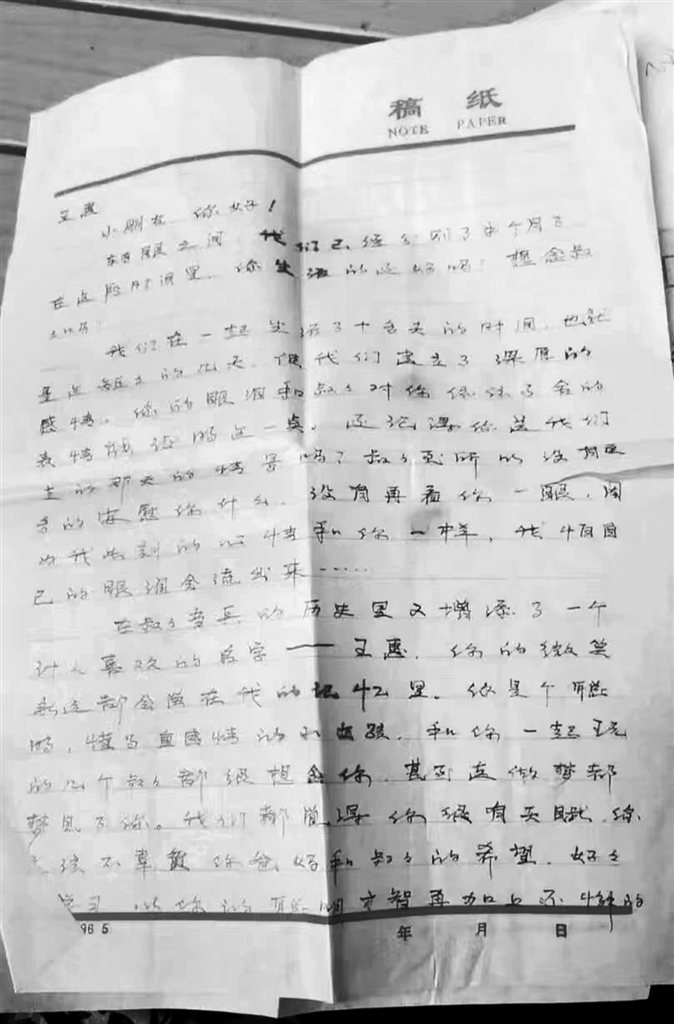 稿 纸
NOTE PAPER
王惠
小朋友 你好！
转眼之间 我们已经分别了半个月了
在这段时间里，你生活的还好吗？想念叔
叔吗？
我们在一起生活了十多天的时间，也就
是这短短的几天，使我们建立了深厚的
感情。你的眼泪和叔叔对你依依不舍的
表情能证明这一点。还记得你送我们
走的那天的情景吗？叔叔 的没有
多的安慰你什么，没有再看你一眼，因
为我此刻的心情和你一样，我怕自
己的眼泪会流出来……
在叔叔当兵的历史里又增添了一个
让人喜欢的名字——王惠，你的微笑
永远都会留在我的记忆里。你是个聪
明，懂事重感情的小女孩，和你一起玩
的几个叔叔都很想念你，甚至连做梦都
梦见了你。我们都觉得你很有天赋，你
该不辜负你爸妈和叔叔的希望，好好
学习，以你的聪明才智再加上不懈的
96 5
年 月 日